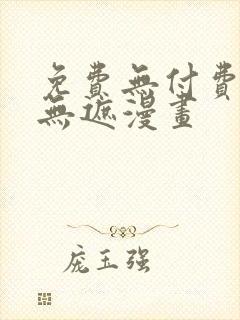 免費無付費
無遮漫畫
庞玉强